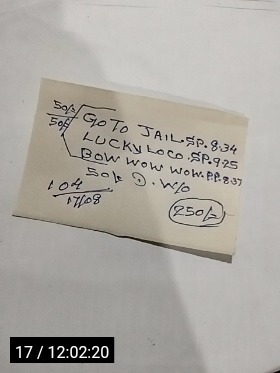 50/- GO TO JAIL. SP. 8.34
50/- LUCKY LOCO. SP. 9.25
BOW WOW WOW. P.P. 8.37
50/- ①. W/O
104
17/08
250/-
17 / 12:02:20